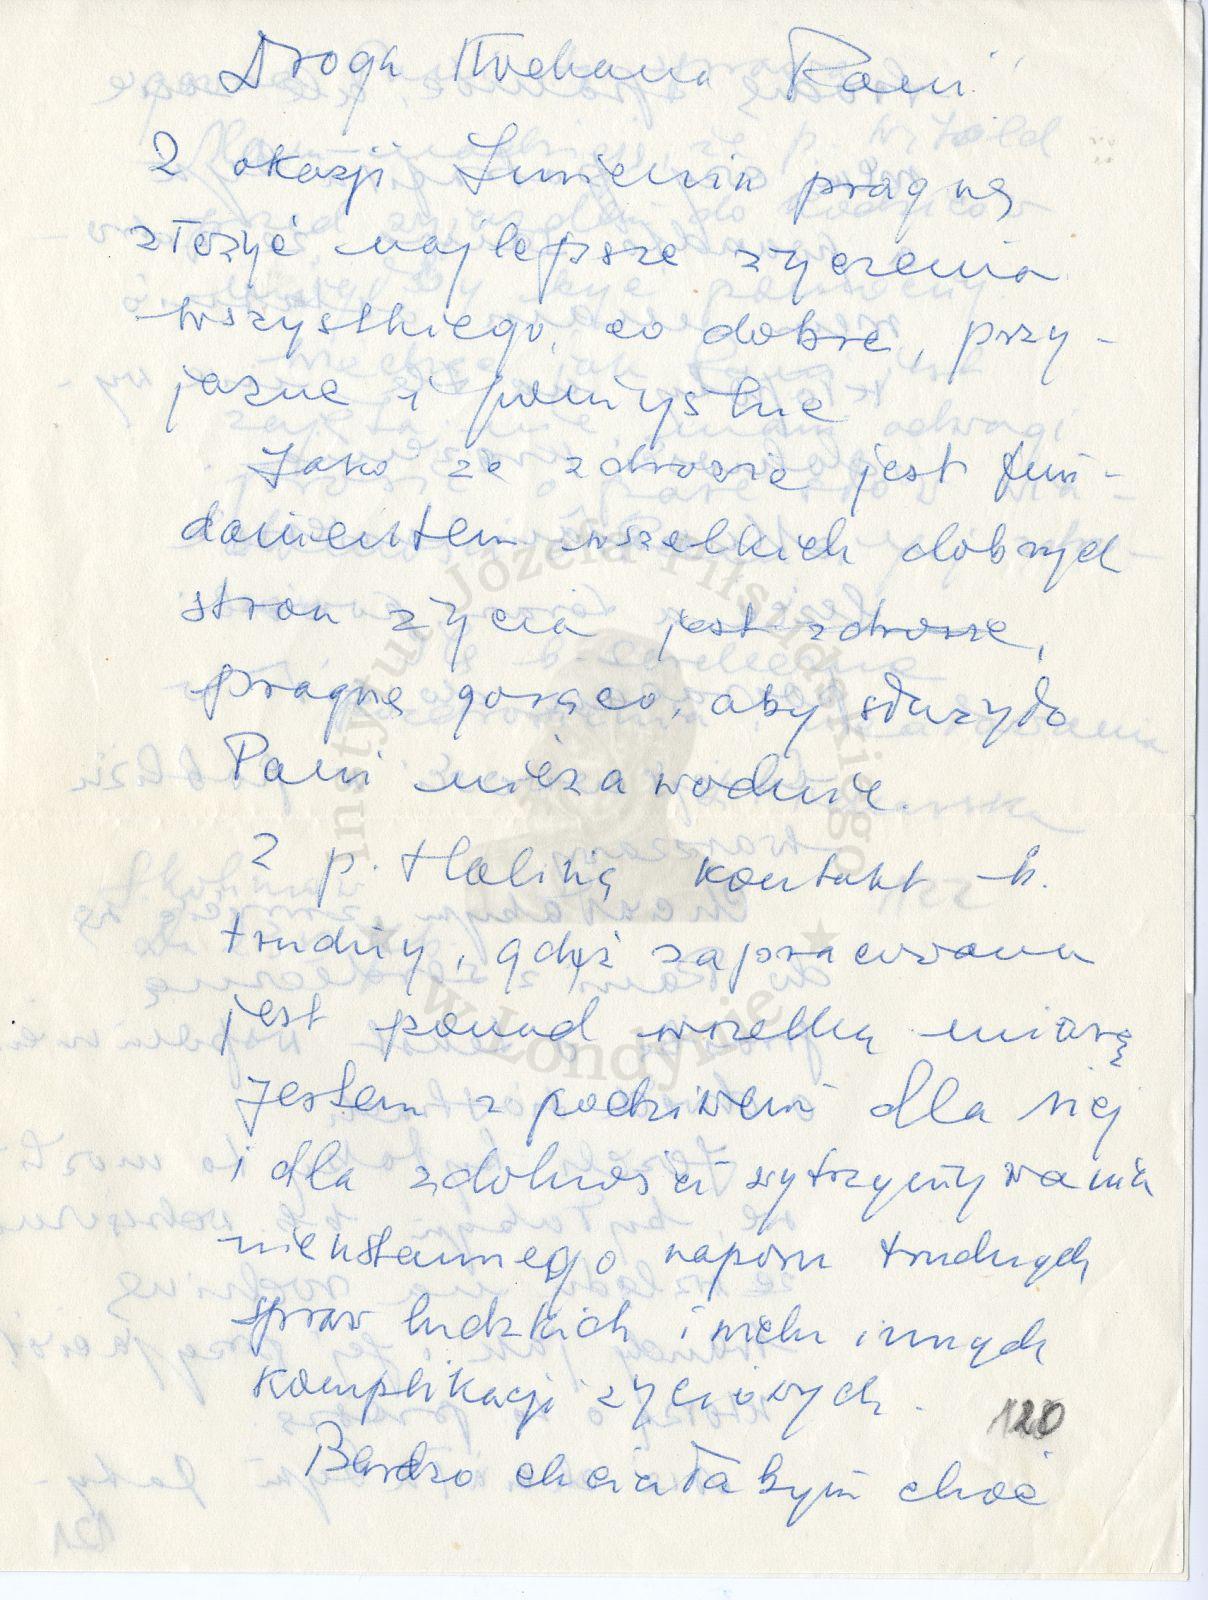 Droga Kochana Pani
Z okazji Imienin pragnę
złożyć najlepsze życzenia
wszystkiego, co dobre, przy-
jazne i pomyślne
Jako że zdrowie jest fun-
damentem wszelkich dobrych
stron życia jest zdrowie,
pragnę gorąco, aby służyło
Pani niezawodnie.
Z p. Haliną kontakt b.
trudny, gdyż zapracowana
jest ponad wszelką miarę
Jestem z podziwem dla niej
i dla zdolności wytrzymywania
nieustannego naporu trudnych
spraw ludzkich i wielu innych
komplikacji życiowych.
Bardzo chciałabym choć
120
Instytut Józefa Piłsudskiego
w Londynie
121